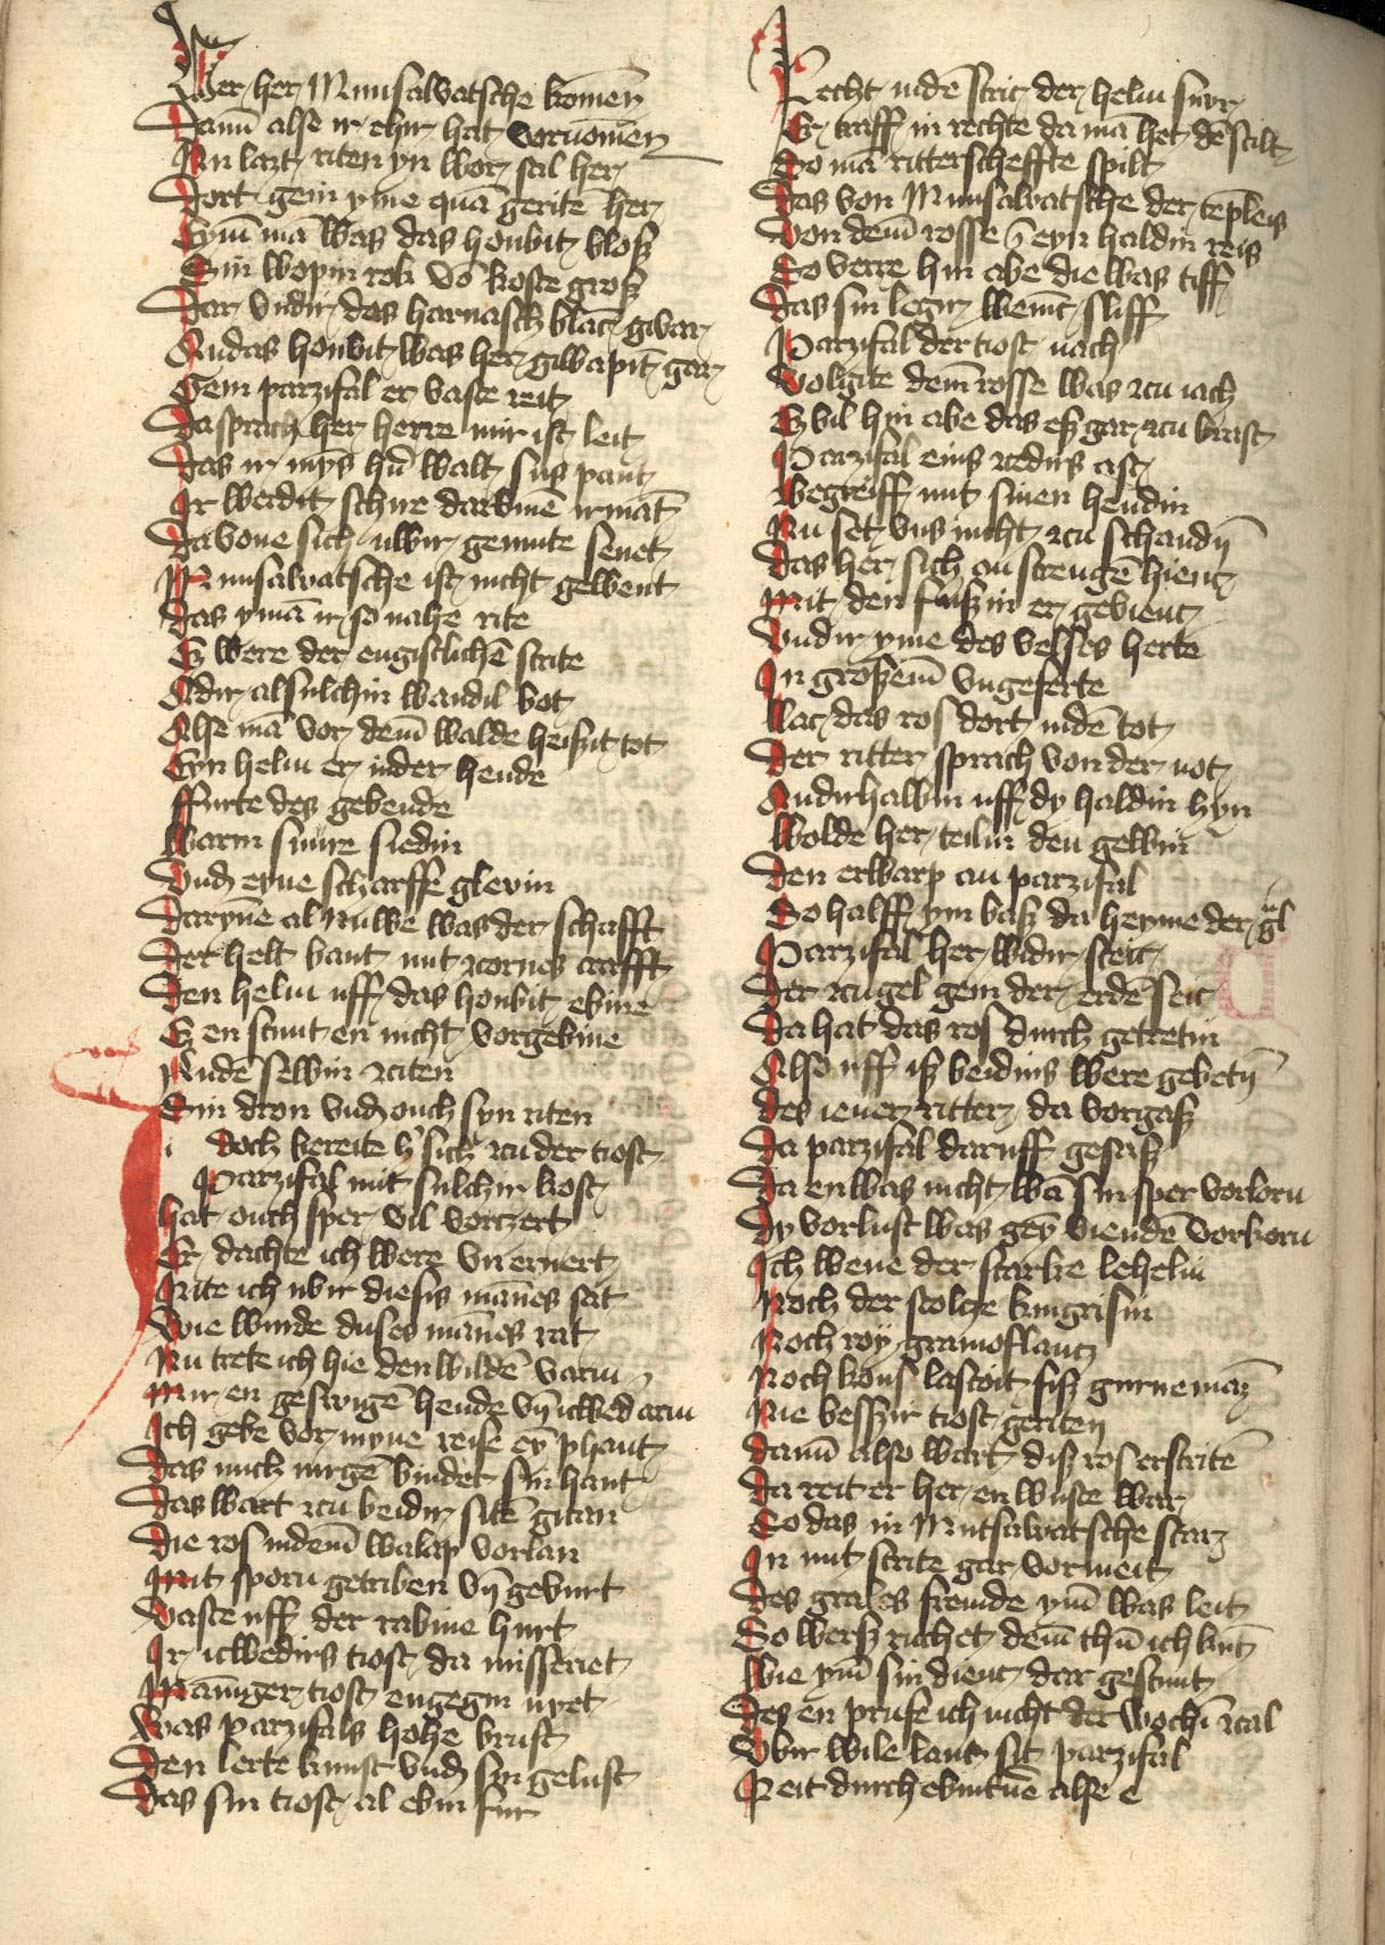 Wer her Munsalvatsche komen̄
Dann̄ alse ir ehir hat vornōmen
Nu lazt riten yn wor sal her
Dort gein yme quā geritē her
Eym̄ mā was das houbit blosz
Sin wopin rok vō koste grosz
Dar undir das harnasch blāc gwar
An das houbit was her giwapīt gar
Gein parzifal er vaste reit
Da sprach her herre mir ist leit
Das ir myns hn̄ walt sus pant
Ir werdit schire darvmē irmāt
Da vone sich uwir gemute senet
Munsalvatsche ist nicht gewent
Das ymā ir so nahe rite
Ez were der engistlichē strite
Adir alsulchin wandil bot
Alse mā vor dem̄ walde heiszit tot
Eyn helm er in der hende
ffurte des gebende
Warin snure siedin
Vnd eyne scharffe glevin
Darynē al nuwe was der schafft
Der helt bant mit zcornes crafft
Den helm uff das houbit ebine
Ez en stunt en nicht vorgebine
An dē selbin zciten
Sin dron vnd ouch syn riten
i doch bereite h' sich zcu der tiost
Parzifal mit sulchir kost
hat ouch sper vil vorczert
Er dachte ich were vnernert
Rite ich ubir diesis mānes sāt
Wie wurde duses mānes rat
Nu trete ich hie den wildē varm
Mir en geswigē hende vn̄ icwed arm
Ich gebe vor myne reise eȳ phant
Das mich nirgē bindet sin hant
Das wart zcu beidir sitē gitan
Die ros in dem̄ walap vorlan
Mit sporn getriben vn̄ gevurt
Vaste uff der rabine hurt
Ir icwedirs tiost da misseriet
Māniger tiost engegin nyet
Was parzifals hohe brust
Den lerte kunst vnd sin gelust
Das sin tiost al ebin fur
Recht in dē stric der helm snur
Er traff in rechte da mā het dē schilt
So mā ritterscheffte spilt
Das von Munsalvatsche der tēpleis
Von dem̄ rosse ī eyn haldin reis
So verre hin abe die was tiff
Das sin legir wenīc sliff
Parzifal der tiost nach
Volgite dem̄ rosse was zcu iach
Ez vil hin abe das esz gar zcu brast
Parzifal eins zcedirs ast
Begreiff mit sinen hendin
Nu set vns nicht zcu schandin̄
Das her sich an strengē hienc
Mit den fuszin er gevienc
Vndir yme des velses herte
In groszem̄ vngeferte
Lac das ros dort nidē tot
Der ritter sprach von der not
Andirhalbin uff dy haldin hyn
Wolde her teilin den gewin
Den erwarp an parzifal
So halff ym basz da heyme der gl
Parzifal her widir steic
Der zcugel gein der erdē seic
Da hat das ros durch getretin
Also uff isz beidins were gebetn̄
Des iener ritter da vorgasz
Da parzifal daruff gesasz
Da enwas nicht wā sin sper vorlorn
Dy vorlust was geȳ viendē vorkorn
Ich wene der starke lehelin
Noch der stolcze kingrisin
Noch roy gramoflancz
Noch kons lascoit fisz gurnemāz
Nie besszir tiost geriten
Dann̄ also wart disz ros erstritē
Da reit er her en wuste war
So das in Mutsalvatsche scarz
In mit strite gar vormeit
Des grales fremde ym̄ was leit
So wersz ruchet dem̄ thū ich kūt
Wie ym̄ sin dienc dar gestunt
Des en prufe ich nicht der wochī zcal
Vbir wile lanc sit parzifal
Reit durch ebintuē alse e